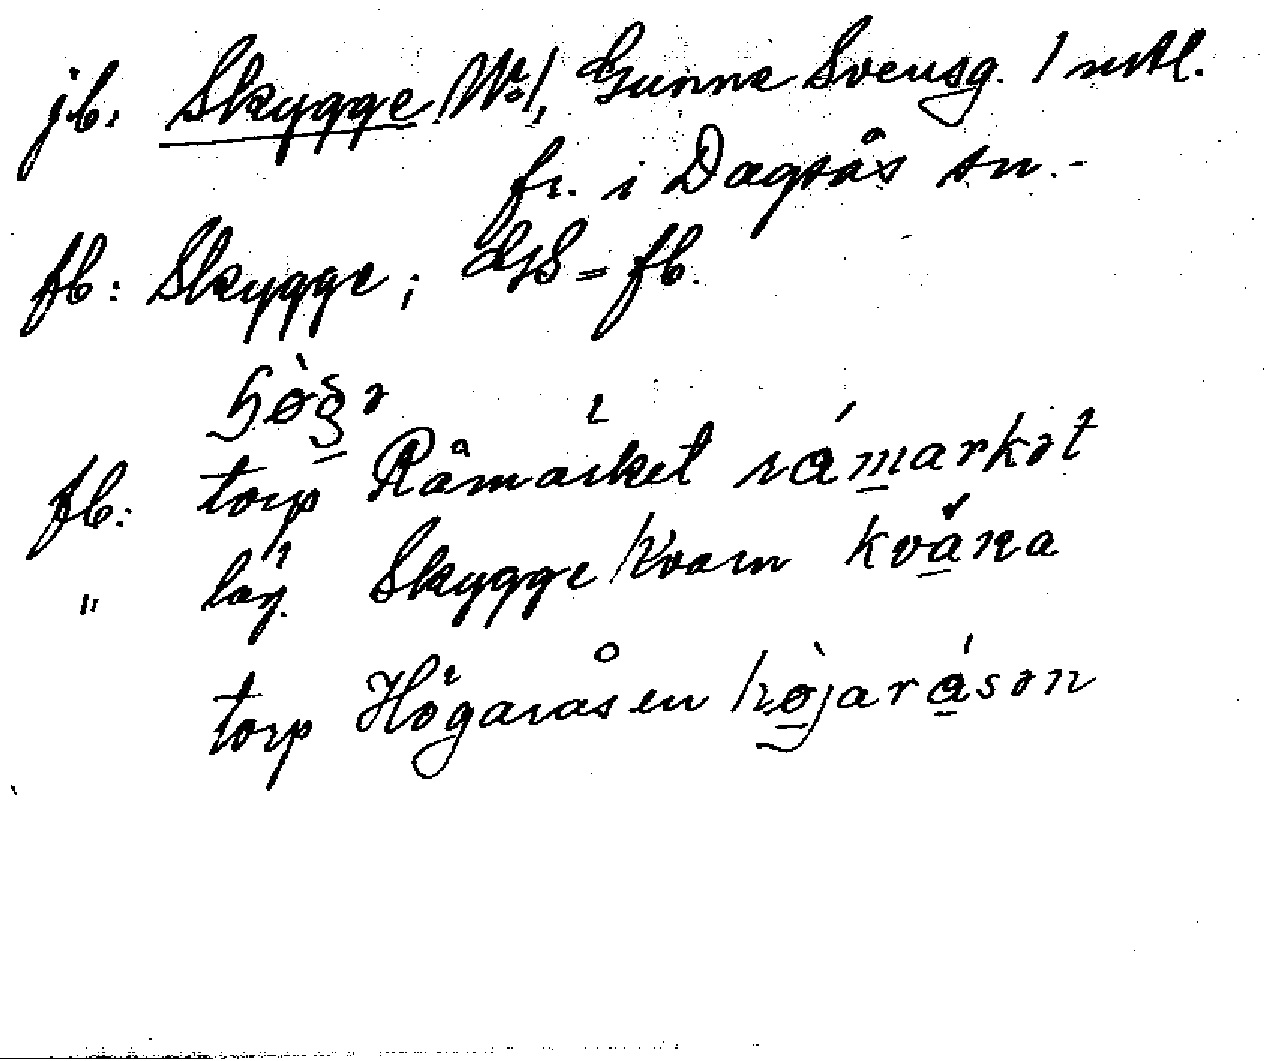 jb. Skygge No 1, Gunna Svensg. 1 mtl.
fr. i Dagsås sn.-
fb: Skygge; GS = fb.
fb: torp Råmärket rámarkət
" läg. Skygge Kvarn kvăɳa
torp Högaråsen hòjarásən